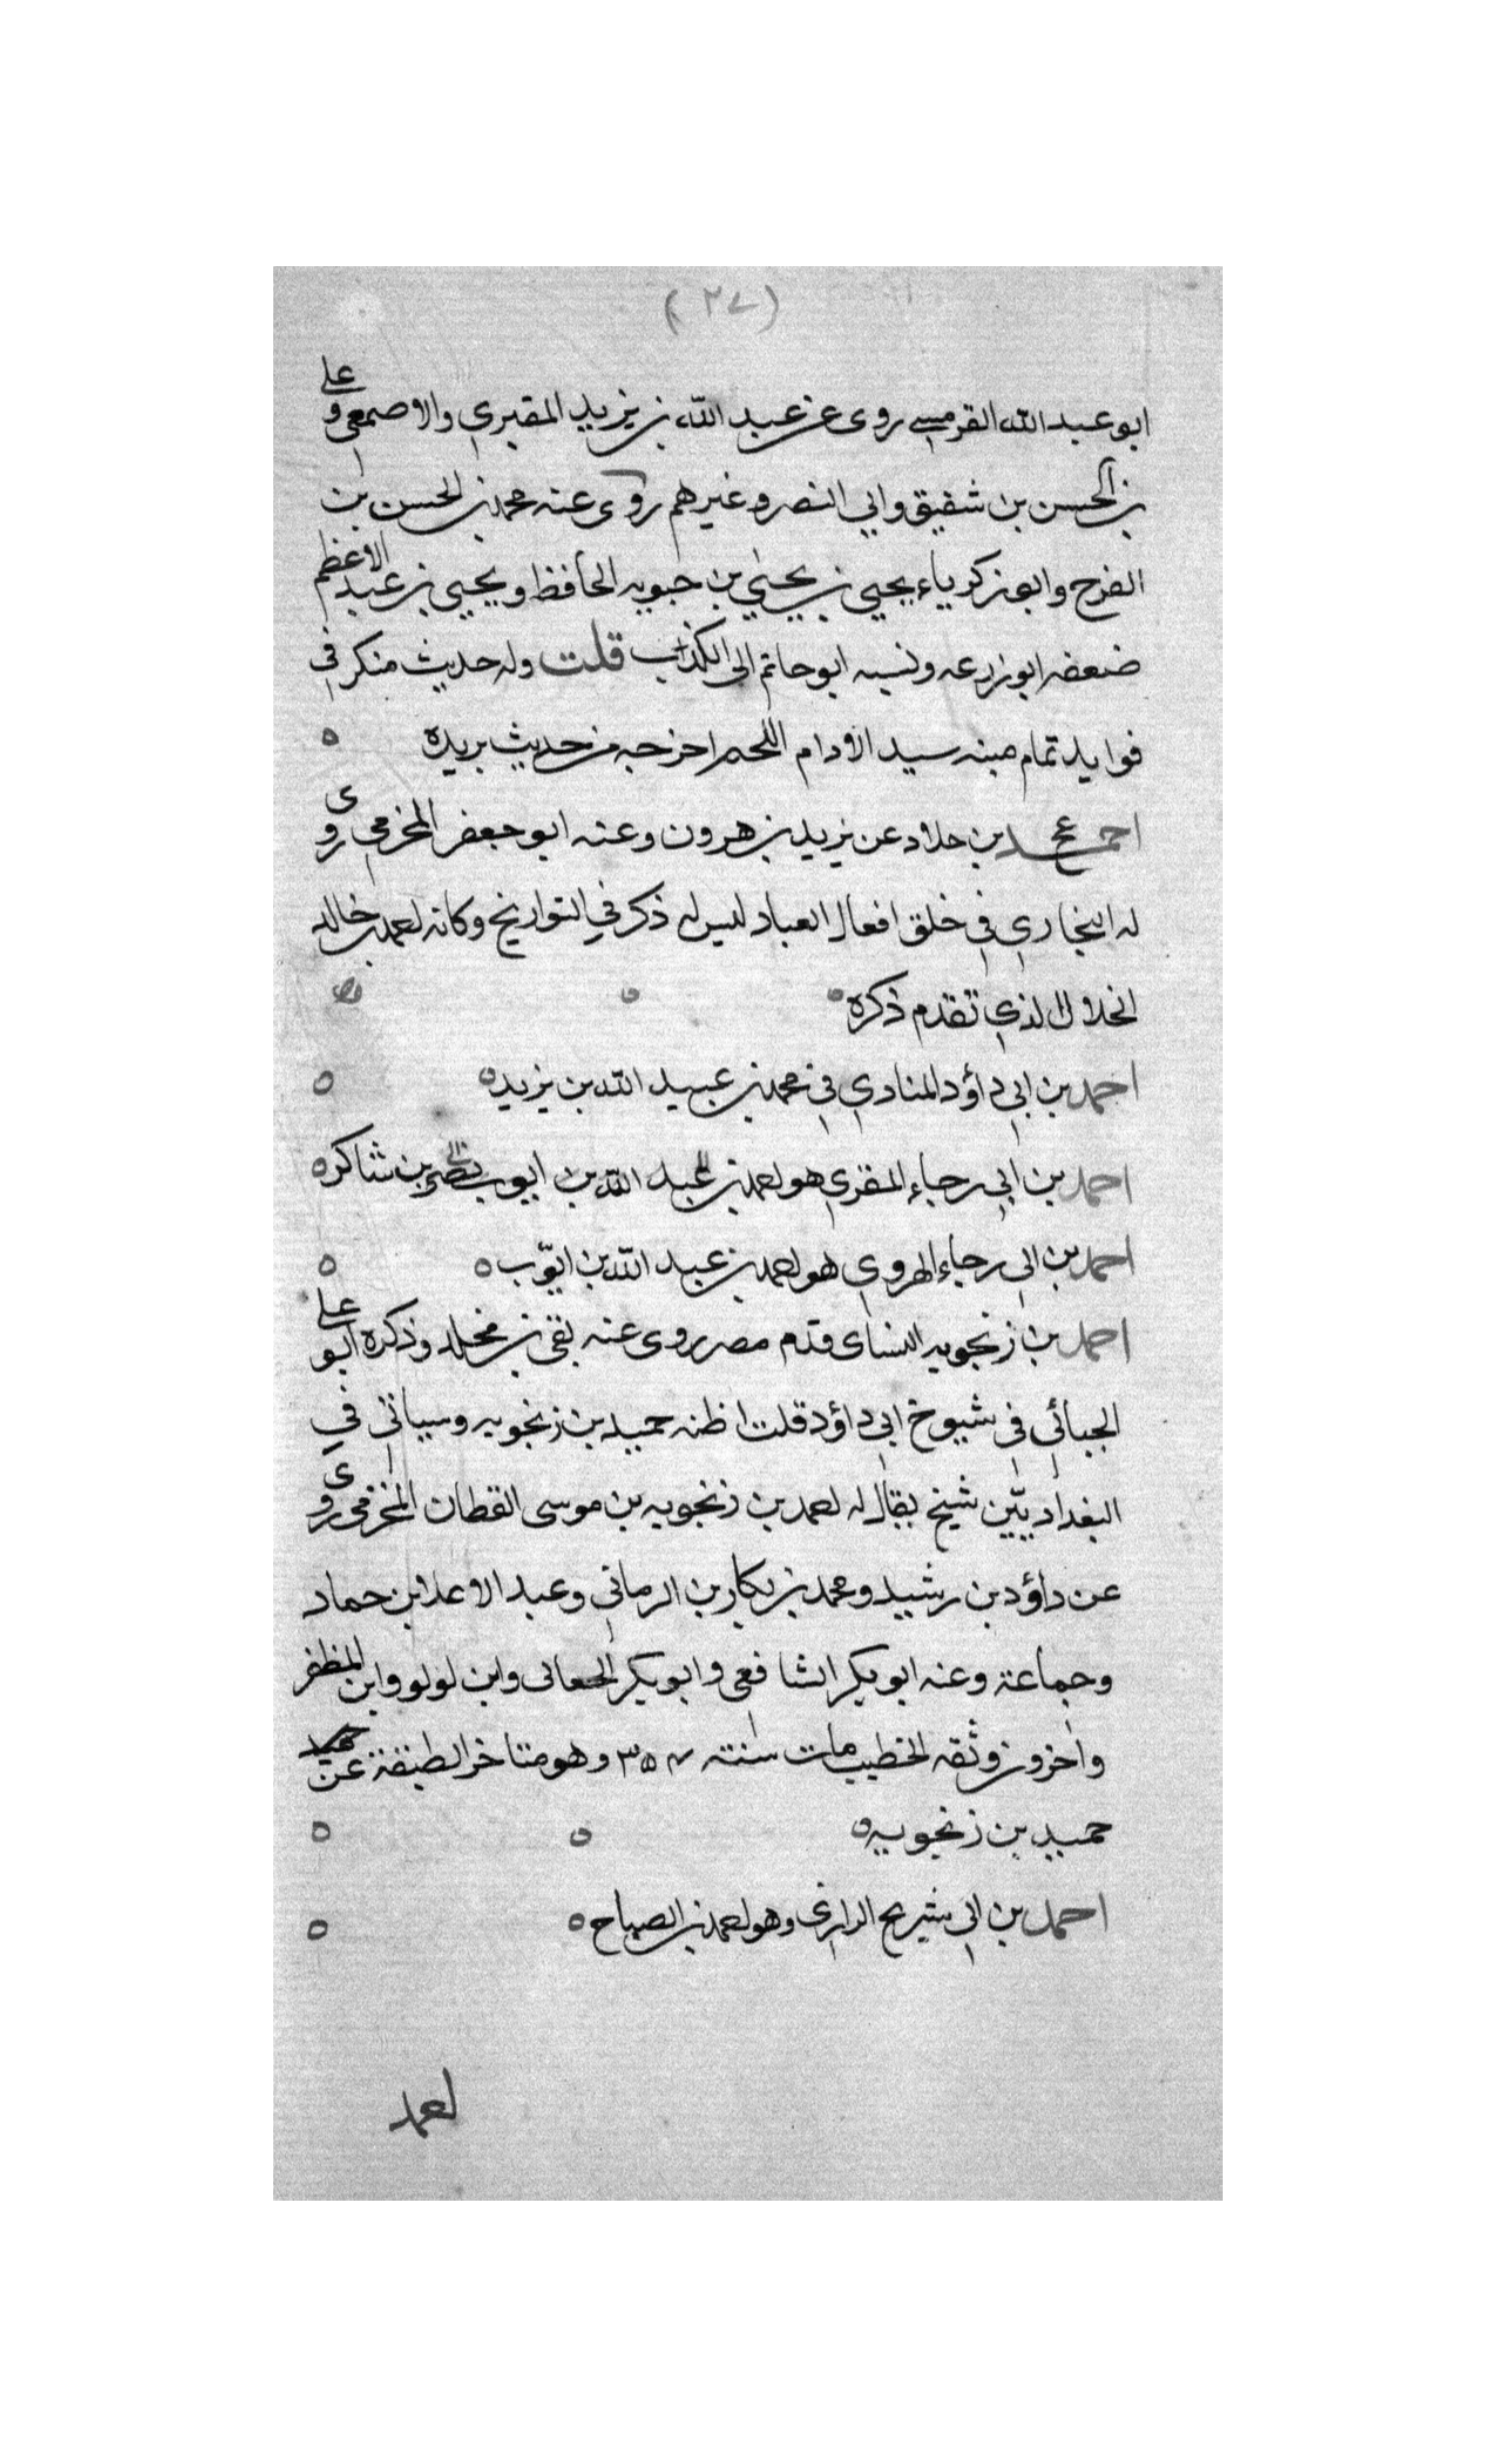 (٢٧)
ابو عبد الله القرمسي روى عن عبد الله بن يزيد المقبري والاصمعي وعلى
بن الحسن بن شقيق وابي النضر وغيرهم روى عنه محمد بن الحسن بن
الفرج وابو زكرياء يحيى بن يحيى بن حبويه الحافظ ويحيى بن عبد الاعظم
ضعفه ابو زرعه ونسبه ابو حاتم الى الكذب قلت وله حديث منكر في
فوايد تمام متنه سيد الادام اللحم اخرجه من حديث بريده ه
احمد بن خلاد عن يزيد بن هرون وعنه ابو جعفر المخرمي روى
له البخاري في خلق افعال العباد ليس له ذكر في التواريخ وكانه احمد بن خالد
الخلال الذي تقدم ذكره ه
احمد بن ابي داؤد المنادي في محمد بن عبيد الله بن يزيد ه ه
احمد بن ابي رجاء المقري هو احمد بن عبد الله بن ايوب نصر بن شاكر ه
احمد بن ابي رجاء الهروي هو احمد بن عبد الله بن ايّوب ه ه
احمد بن زنجويه النساى قدم مصر روى عنه بقى بن مخلد وذكره ابو على
الجبائي في شيوخ ابي داؤد قلت اظنه حميد بن زنجويه وسياتي في
البغداديّين شيخ يقال له احمد بن زنجويه بن موسى القطان المخرمي روى
عن داؤد بن رشيد ومحمد بن بكار بن الرماني وعبد الاعلا ابن حماد
وجماعة وعنه ابو بكر الشافعي وابو بكر الجعالى وابن لولو وابن المظفر
واخرون وثقه الخطيب مات سنته ٣٥٧ وهو متاخر الطبقة عن
حميد بن زنجويه ه ه ه
احمد بن ابي شريح الرازي وهو احمد بن الصباح ه ه
احمد